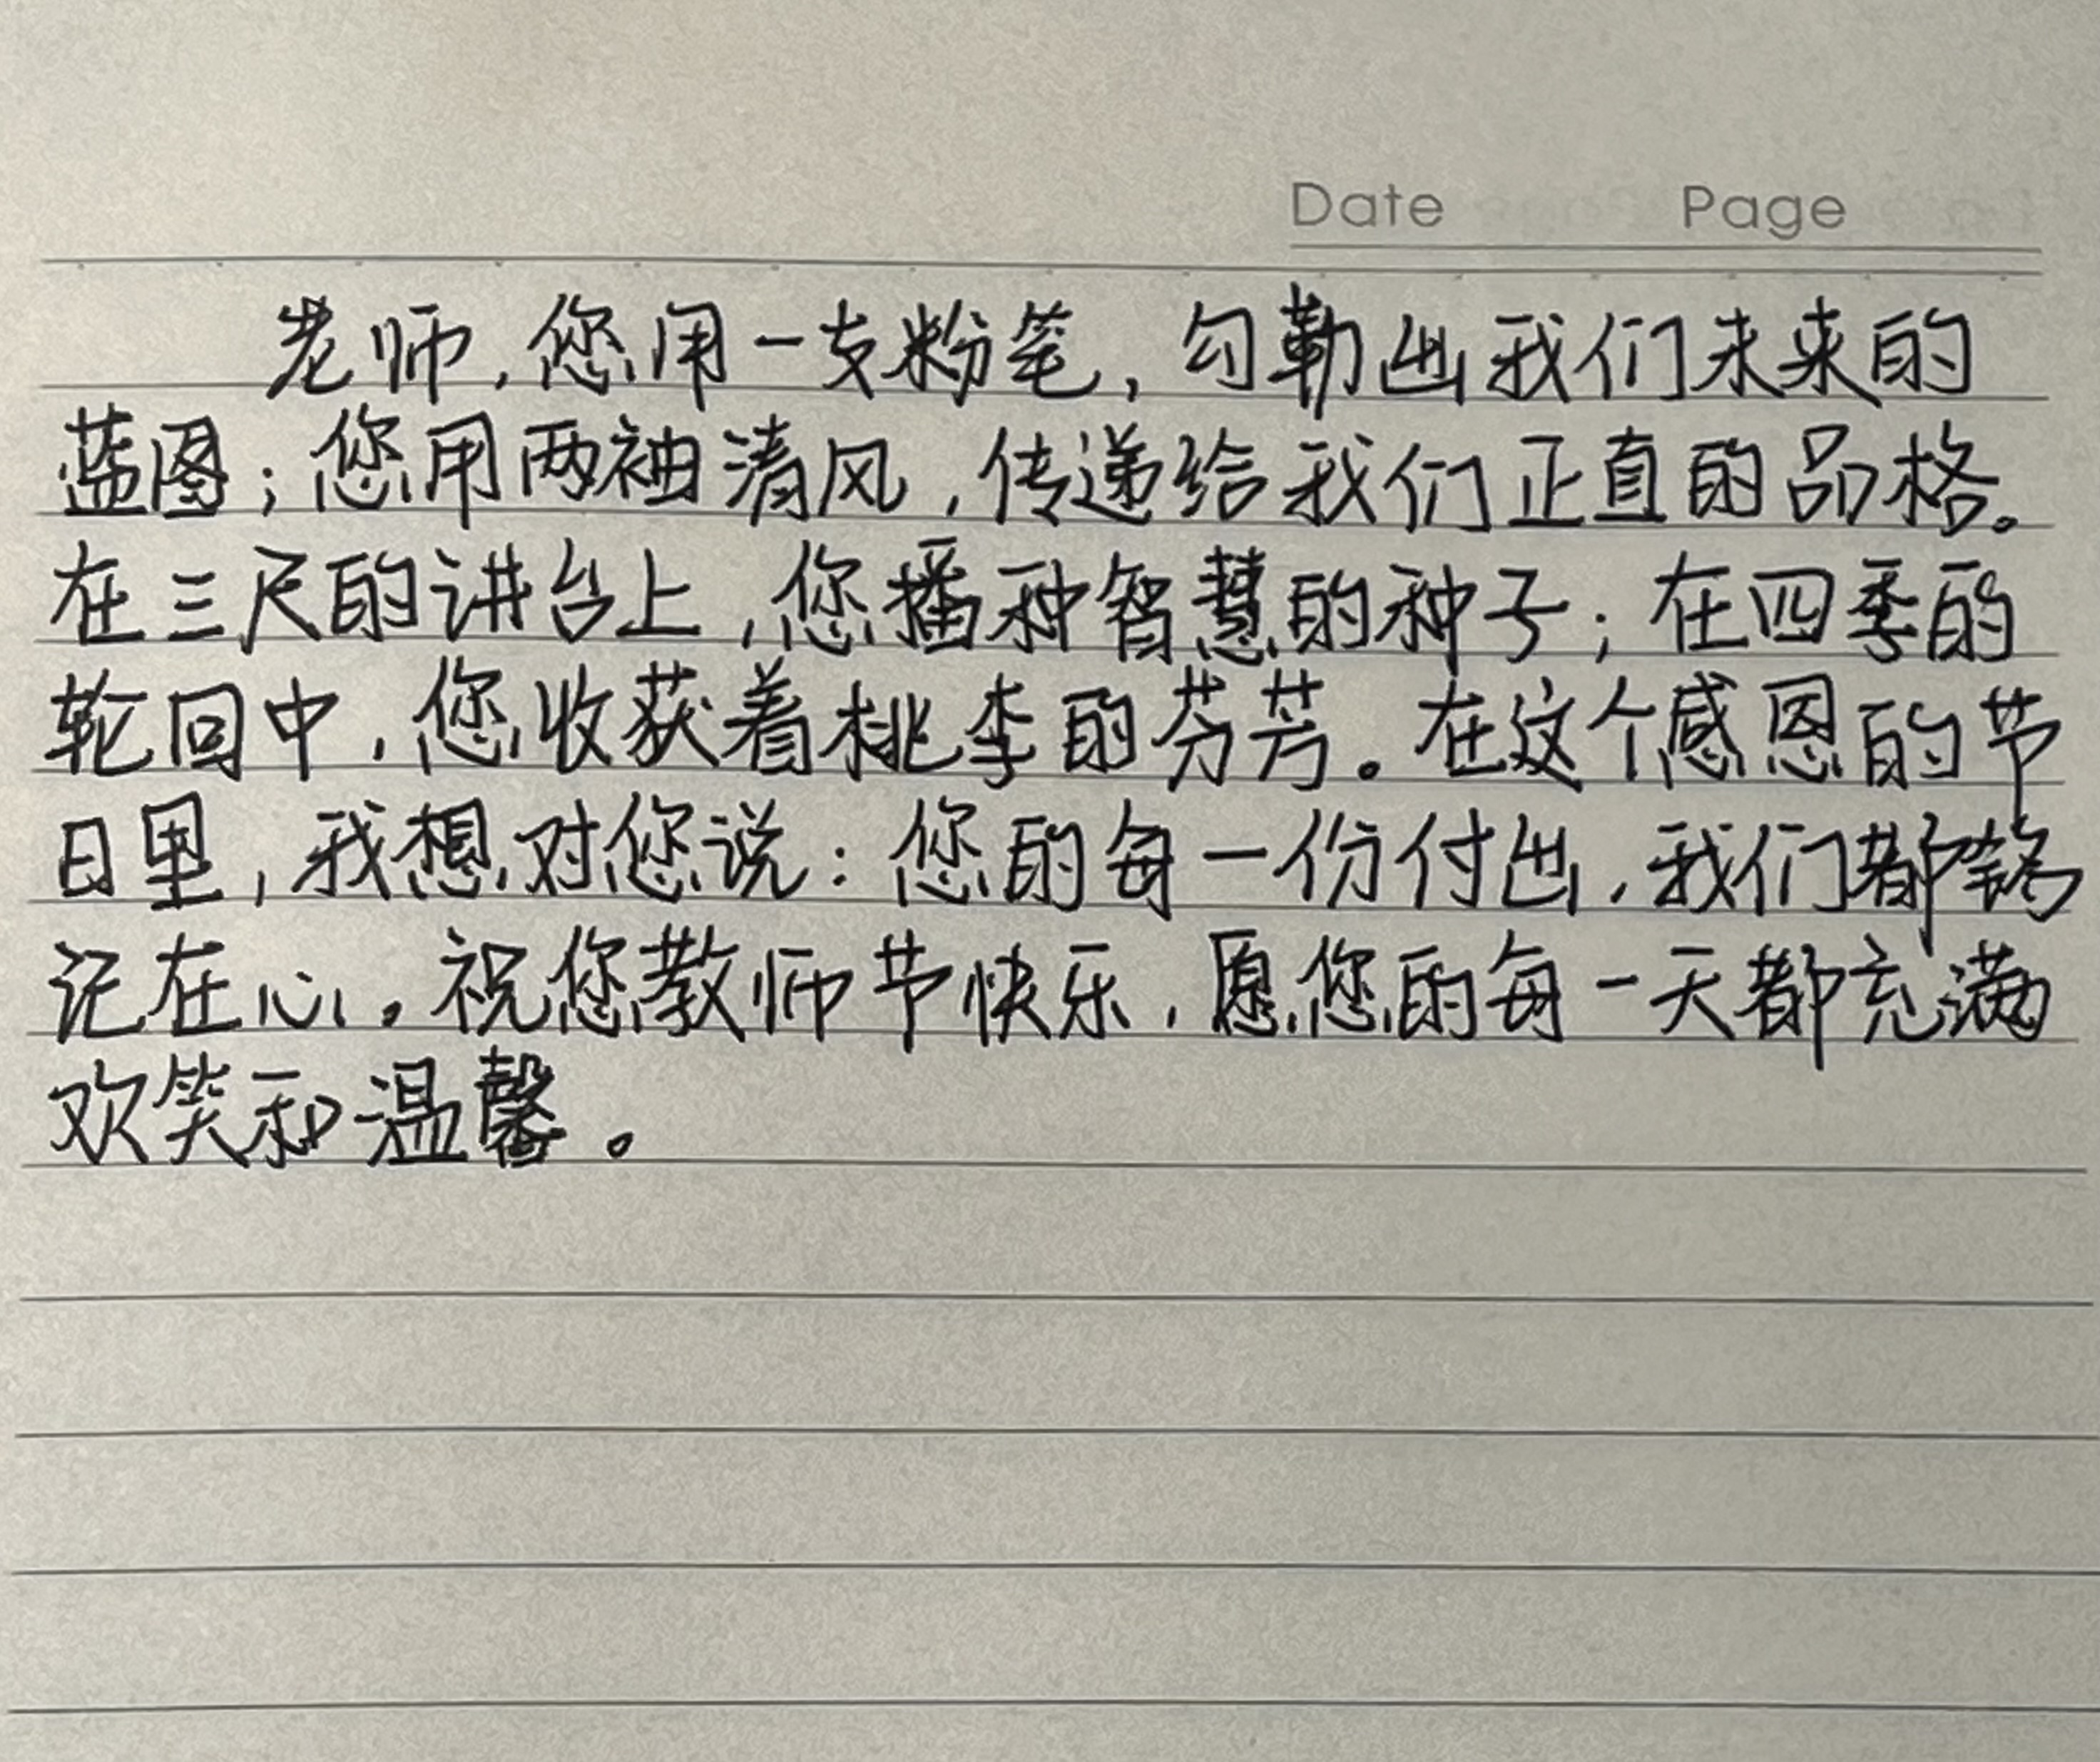 Date Page
老师，您用一支粉笔，勾勒出我们未来的
蓝图；您用两袖清风，传递给我们正直的品格。
在三尺的讲台上，您播种智慧的种子；在四季的
轮回中，您收获着桃李的芬芳。在这个感恩的节
日里，我想对您说：您的每一份付出，我们都铭
记在心。祝您教师节快乐，愿您的每一天都充满
欢笑和温馨。